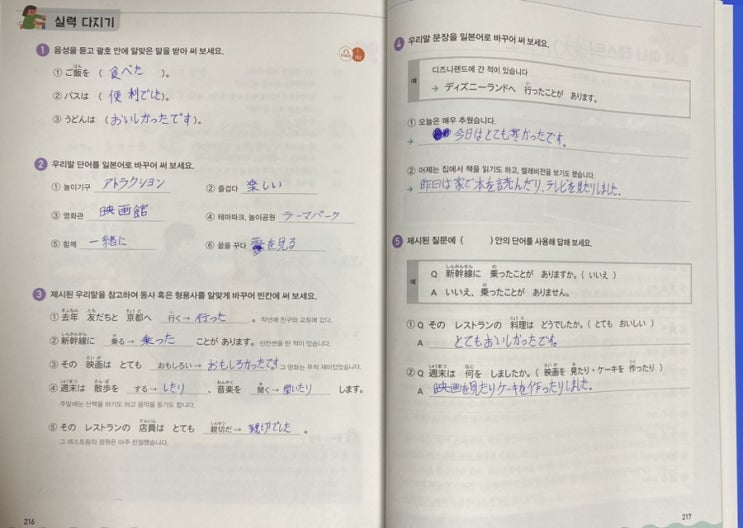 실력 다지기
1 음성을 듣고 괄호 안에 알맞은 말을 받아 써 보세요.
① ご飯を ( 食べた )。
② バスは ( 便利でした )。
③ うどんは ( おいしかったです )。
2 우리말 단어를 일본어로 바꾸어 써 보세요.
① 놀이기구 アトラクション ② 즐겁다 楽しい
③ 영화관 映画館 ④ 테마파크, 놀이공원 テーマパーク
⑤ 함께 一緒に ⑥ 꿈을 꾸다 夢を見る
3 제시된 우리말을 참고하여 동사 혹은 형용사를 알맞게 바꾸어 빈칸에 써 보세요.
① 去年 友だちと 京都へ 行く→ 行った 。 작년에 친구와 교토에 갔다.
② 新幹線に 乗る→ 乗った ことが あります。 신칸센을 탄 적이 있습니다.
③ その 映画は とても おもしろい→ おもしろかったです 그 영화는 무척 재미있었습니다.
④ 週末は 散歩を する→ したり 、音楽を 聞く→ 聞いたり します。
주말에는 산책을 하기도 하고 음악을 듣기도 합니다.
⑤ その レストランの 店員は とても 親切だ→ 親切でした 。
그 레스토랑의 점원은 아주 친절했습니다.
216
4 우리말 문장을 일본어로 바꾸어 써 보세요.
예 디즈니랜드에 간 적이 있습니다
→ ディズニーランドへ 行ったことが あります。
① 오늘은 매우 추웠습니다.
→ 今日はとても寒かったです。
② 어제는 집에서 책을 읽기도 하고, 텔레비전을 보기도 했습니다.
→ 昨日は家で本を読んだり、テレビを見たりしました。
5 제시된 질문에 ( ) 안의 단어를 사용해 답해 보세요.
예 Q 新幹線に 乗ったことが ありますか。( いいえ )
A いいえ、乗ったことが ありません。
① Q その レストランの 料理は どうでしたか。( とても おいしい )
A とてもおいしかったです。
② Q 週末は 何を しましたか。( 映画を 見たり・ケーキを 作ったり )
A 映画を見たりケーキを作ったりしました。
217